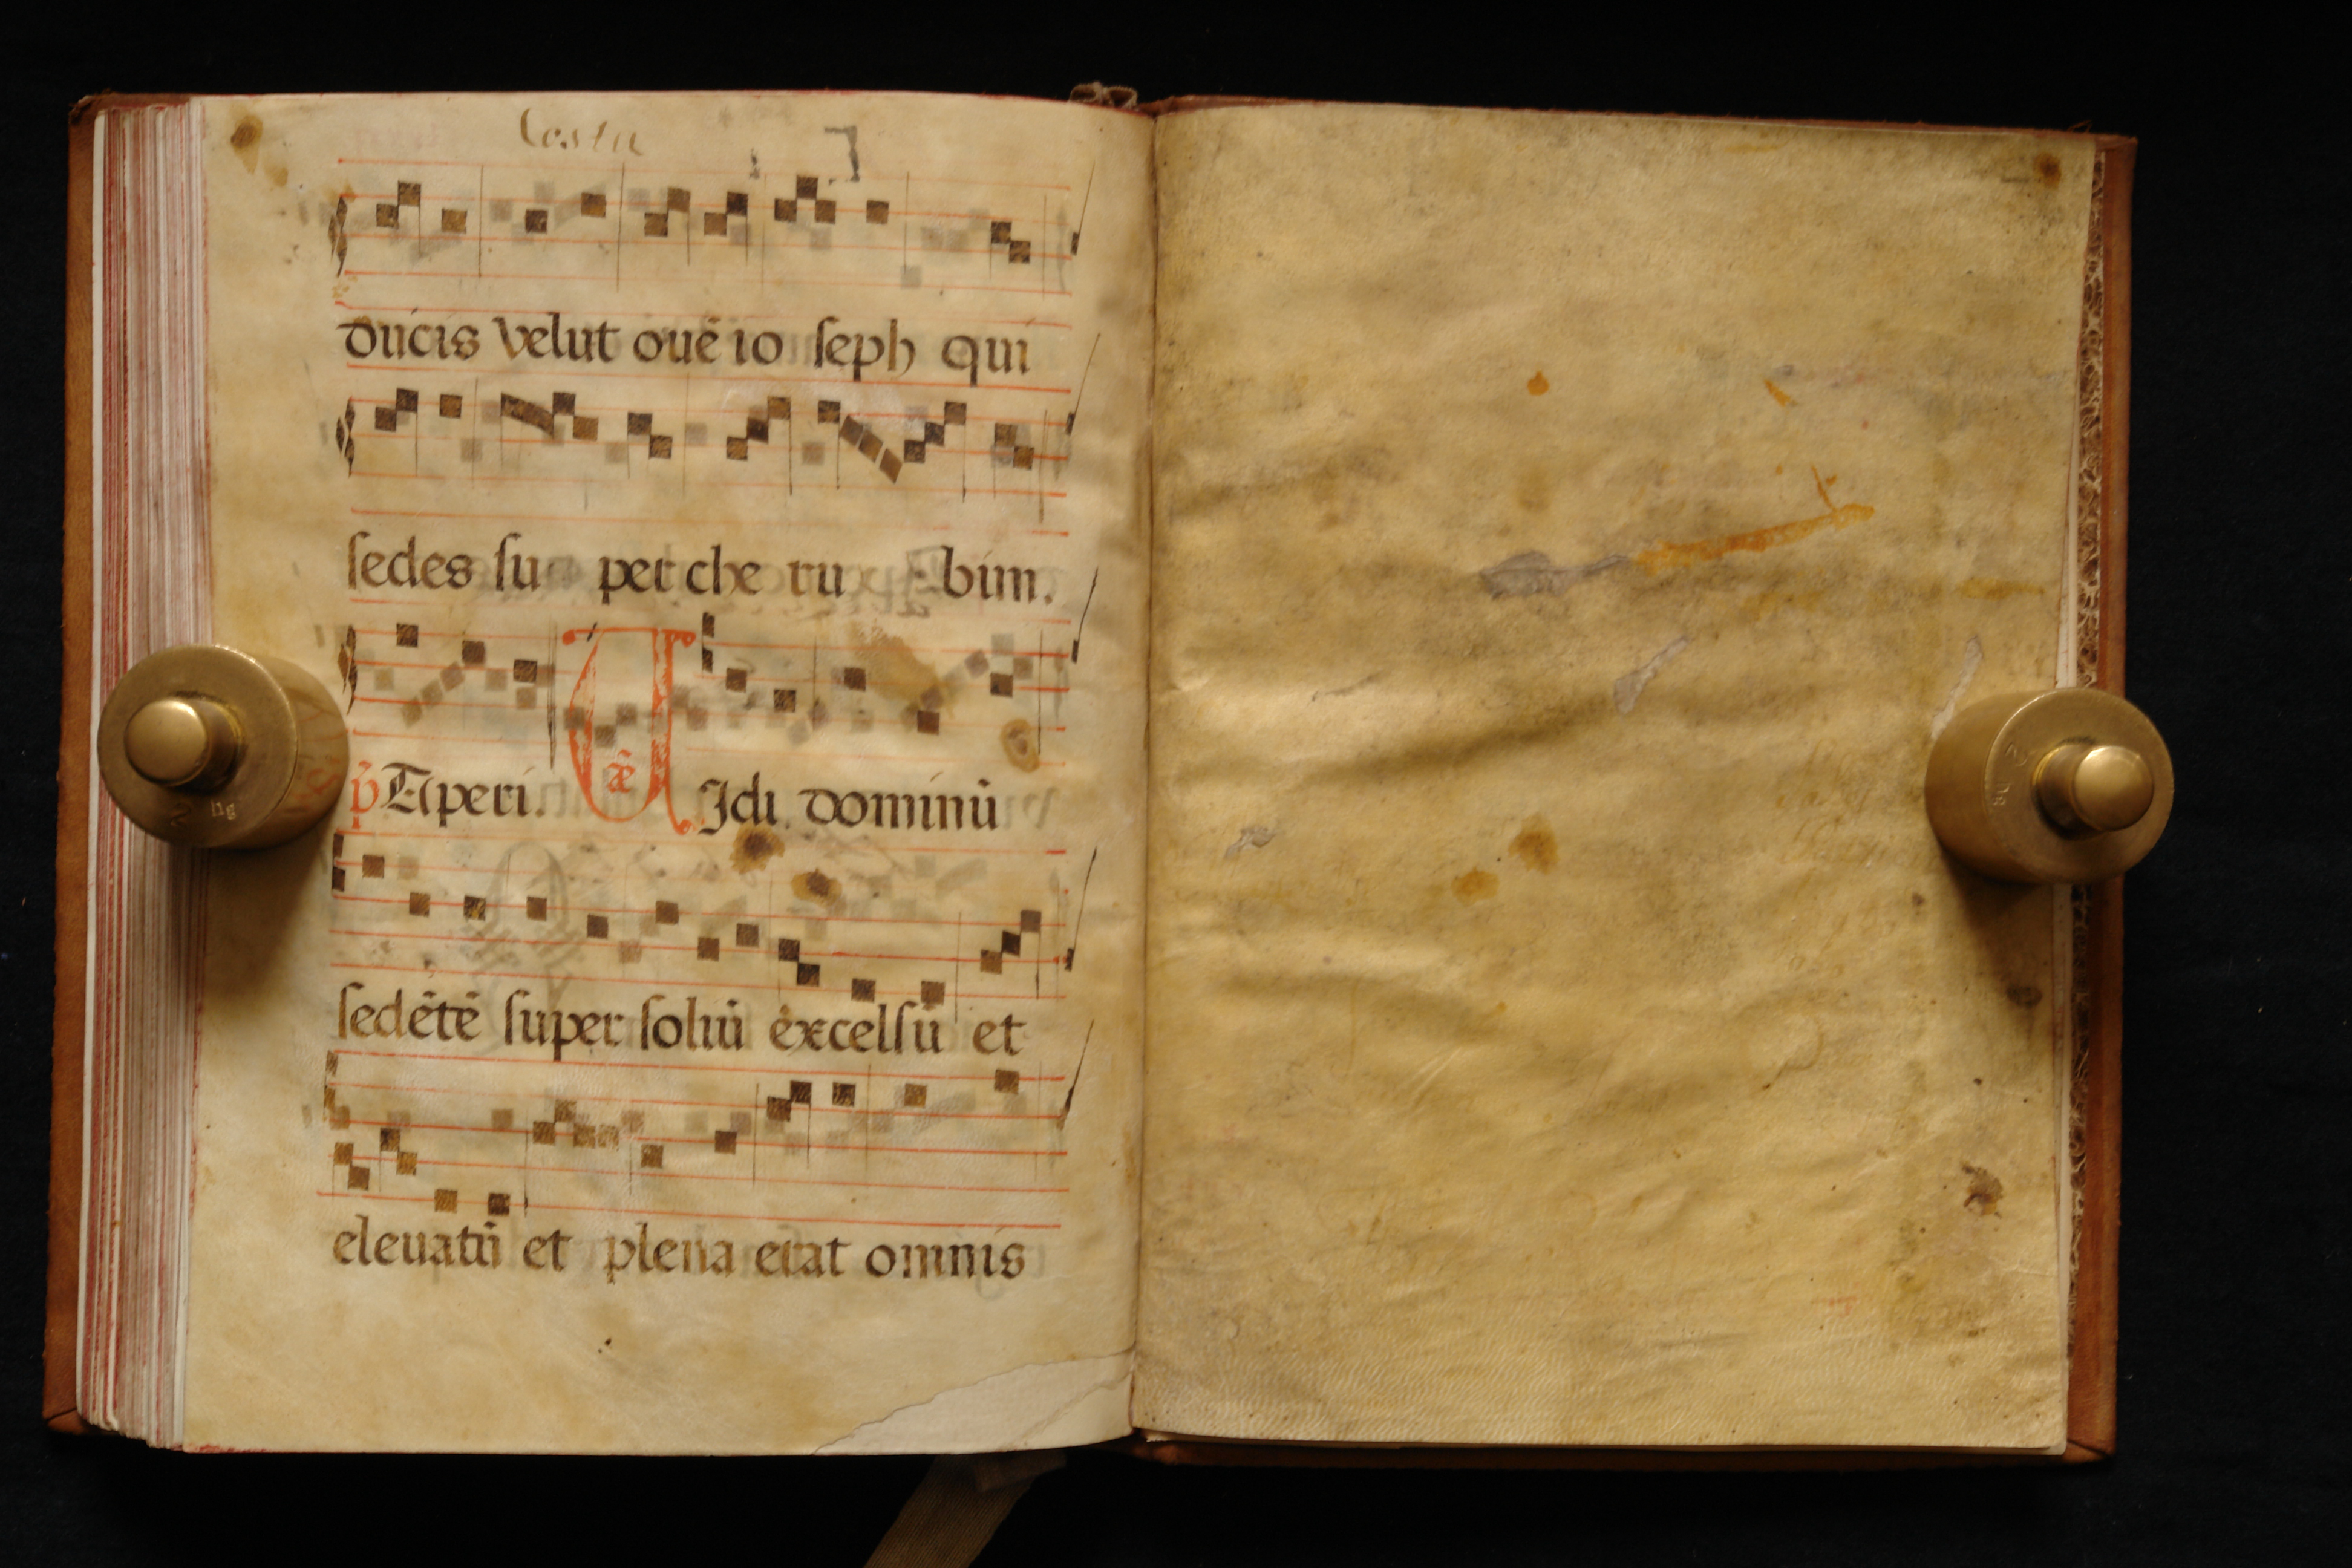 ducis velut ouē io seph qui
sedes su per che ru bim.
p̃ Aperi. V æ Idi dominū
sedētē super soliū excelsū et
eleuatū et plena erat omnis